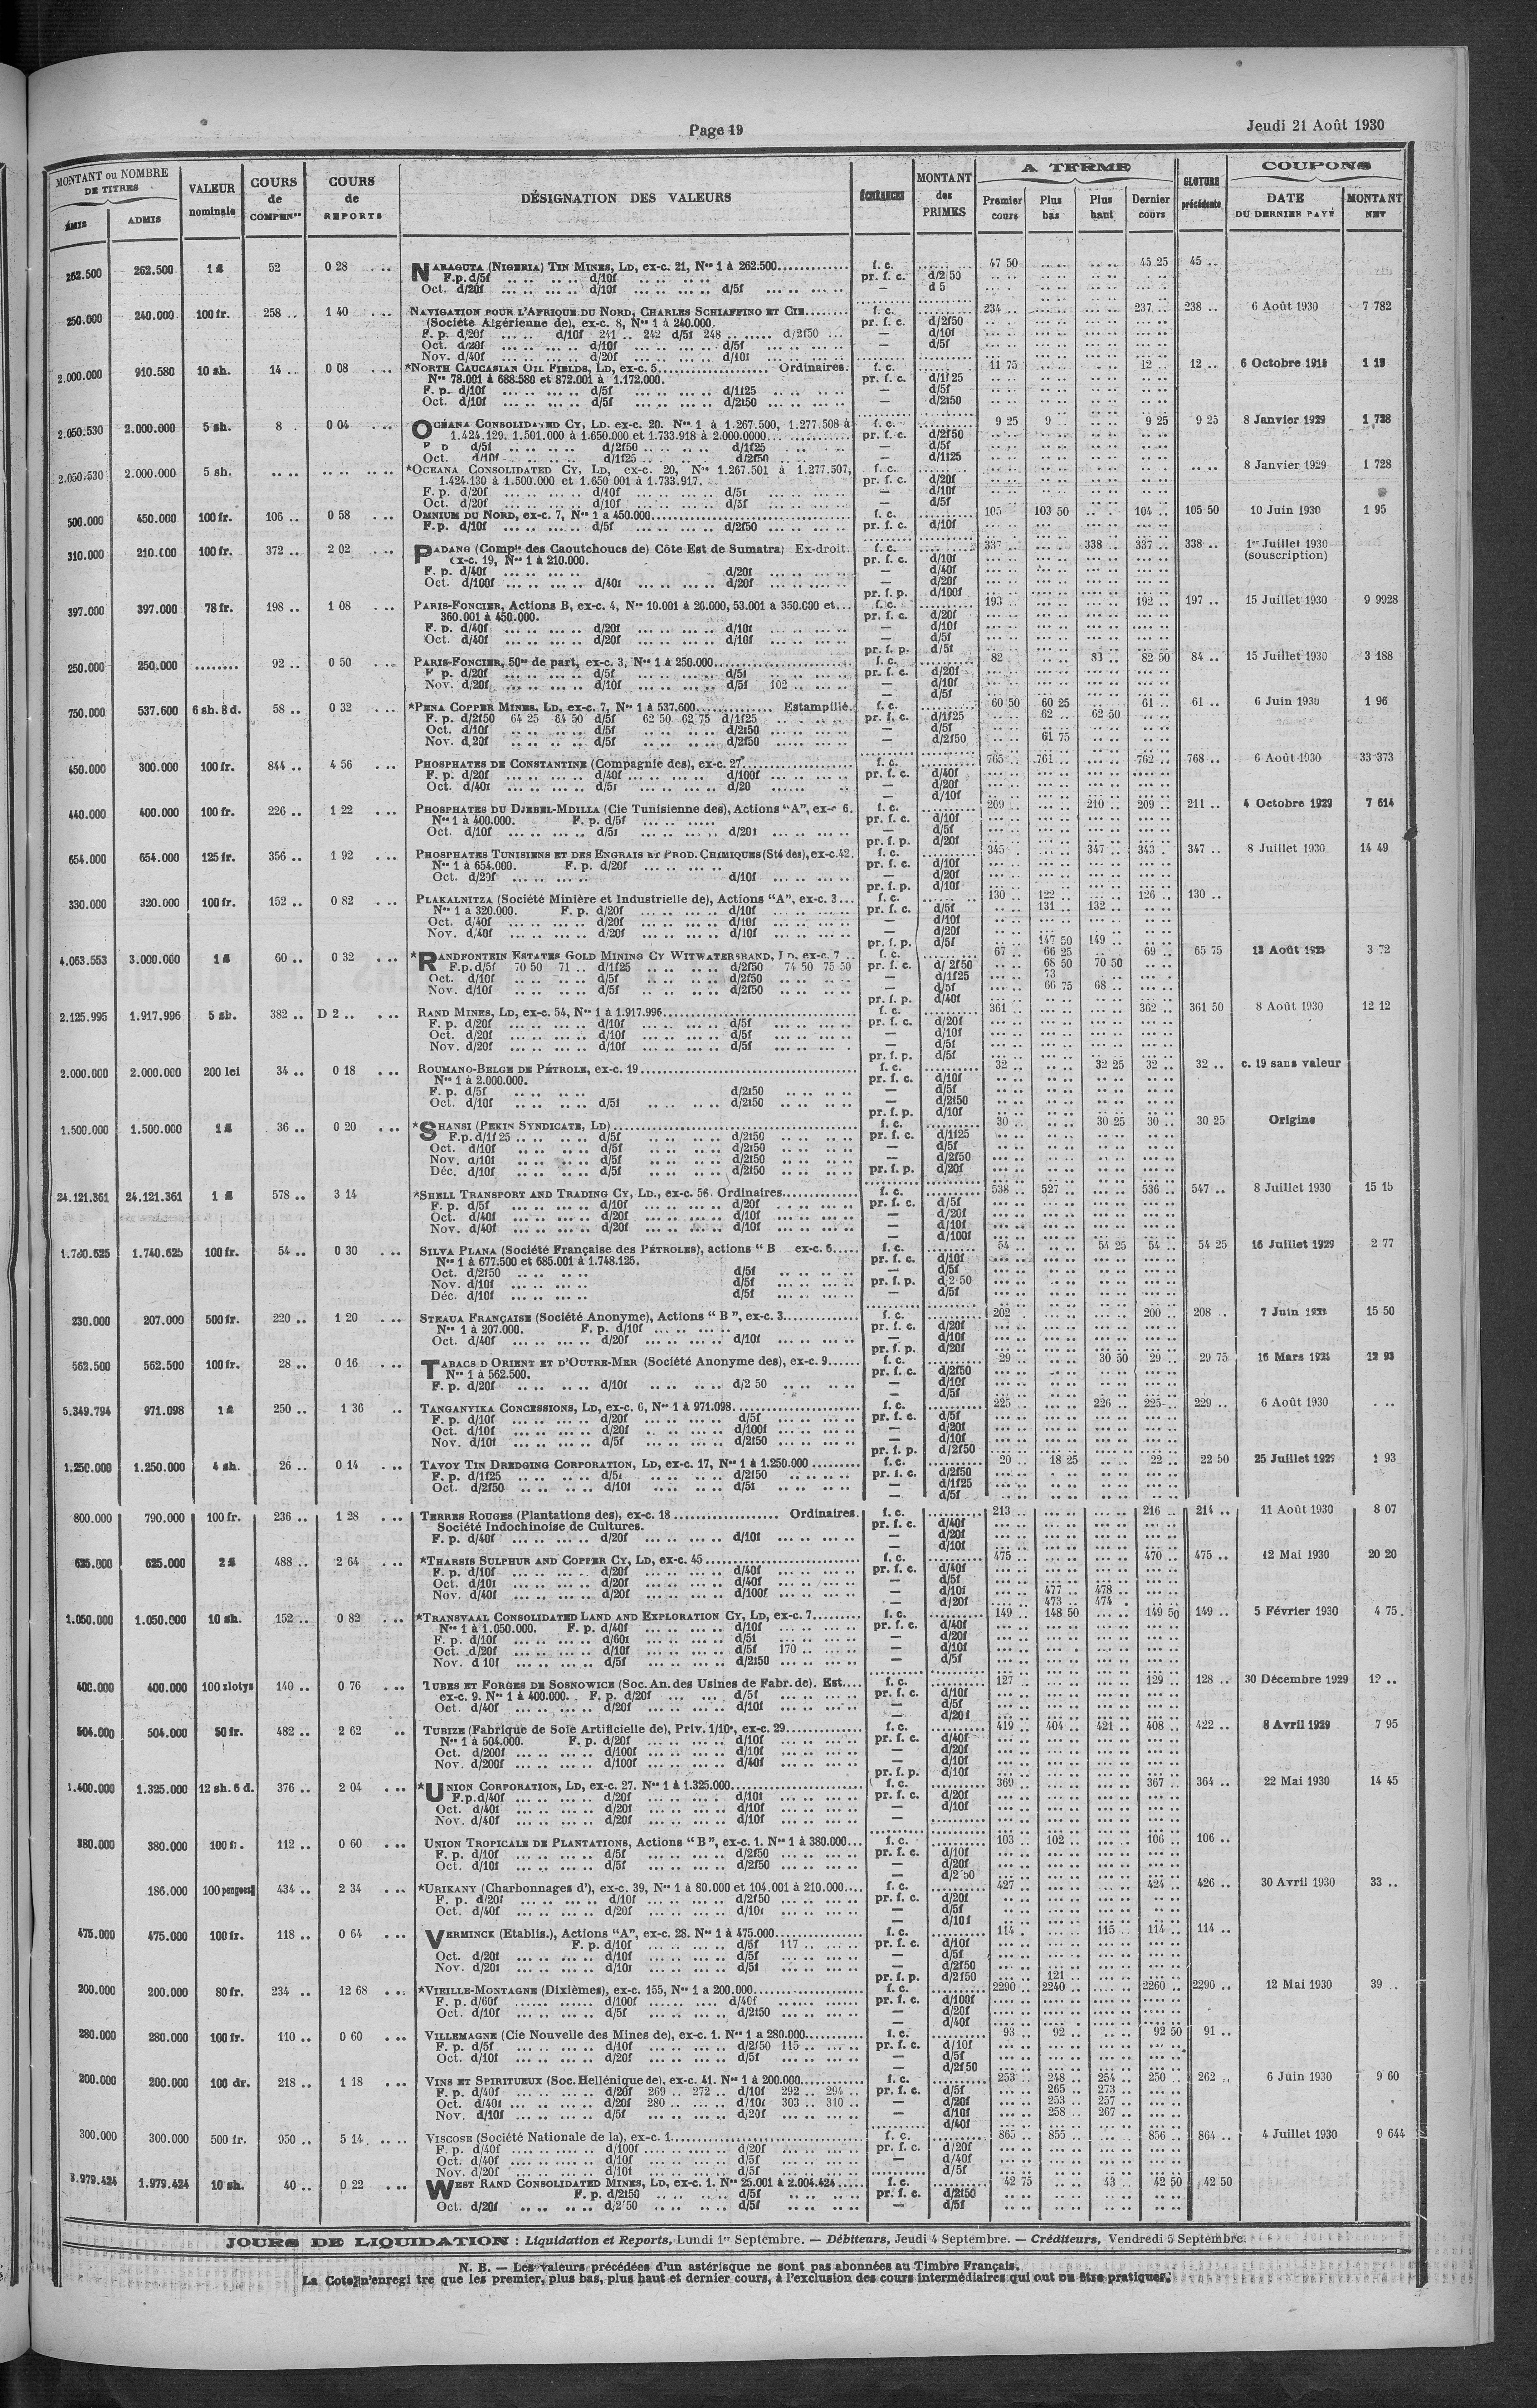 Page 19
Jeudi 21 Août 1930
MONTANT ou NOMBRE DE TITRES
ÉMIS
ADMIS
VALEUR nominale
COURS de COMPENon
COURS de REPORTS
DÉSIGNATION DES VALEURS
ÉCHÉANCES
MONTANT des PRIMES
A TERME
Premier cours
Plus bas
Plus haut
Dernier cours
CLOTURE précédente
COUPONS
DATE DU DERNIER PAYÉ
MONTANT NET
262.500 262.500 1 £ 52 0 28 NARAGUTA (NIGERIA) TIN MINES, LD, ex-c. 21, Nos 1 à 262.500 f. c. 47 50 45 25 45 ..
F.p. d/5f d/10f pr. f. c. d/2 50
Oct. d/20f d/10f d/5f — d 5
250.000 240.000 100 fr. 258 .. 1 40 NAVIGATION POUR L'AFRIQUE DU NORD, CHARLES SCHIAFFINO ET CIE f. c. 234 .. 237 .. 238 .. 6 Août 1930 7 782
(Société Algérienne de), ex-c. 8, Nos 1 à 240.000. pr. f. c. d/2f50
F. p. d/20f d/10f 241 .. 242 d/5f 248 .. d/2f50 — d/10f
Oct. d/20f d/10f d/5f — d/5f
Nov. d/40f d/20f d/10f
2.000.000 910.580 10 sh. 14 .. 0 08 *NORTH CAUCASIAN OIL FIELDS, LD, ex-c. 5 Ordinaires. f. c. 11 75 12 .. 12 .. 6 Octobre
Nos 78.001 à 688.580 et 872.001 à 1.172.000. pr. f. c. d/1f25
F. p. d/10f d/5f d/1f25 — d/5f
Oct. d/10f d/5f d/2f50 — d/2f50
2.050.530 2.000.000 5 sh. 8 . 0 04 OCÉANA CONSOLIDATED CY, LD. ex-c. 20. Nos 1 à 1.267.500, 1.277.508 à f. c. 9 25 9 .. 9 25 9 25 8 Janvier 1929 1 728
1.424.129. 1.501.000 à 1.650.000 et 1.733.918 à 2.000.0000 pr. f. c. d/2f50
d/5f d/2f50 d/1f25 — d/5f
Oct. d/10f d/1f25 d/2f50 — d/1f25
2.050.530 2.000.000 5 sh. *OCEANA CONSOLIDATED CY, LD, ex-c. 20, Nos 1.267.501 à 1.277.507, f. c. 8 Janvier 1929 1 728
1.424.130 à 1.500.000 et 1.650 001 à 1.733.917. pr. f. c. d/20f
F. p. d/20f d/10f d/5f — d/10f
Oct. d/20f d/10f d/5f — d/5f
500.000 450.000 100 fr. 106 .. 0 58 OMNIUM DU NORD, ex-c. 7, Nos 1 a 450.000 f. c. 105 103 50 104 .. 105 50 10 Juin 1930 1 95
F.p. d/10f d/5f d/2f50 pr. f. c. d/10f
310.000 210.000 100 fr. 372 .. 2 02 PADANG (Compie des Caoutchoucs de) Côte Est de Sumatra) Ex-droit. f. c. 337 .. 338 .. 337 .. 338 .. 1er Juillet 1930
ex-c. 19, Nos 1 à 210.000. pr. f. c. d/10f (souscription)
F. p. d/40f d/20f — d/40f
Oct. d/100f d/40f d/20f — d/20f
pr. f. p. d/100f
397.000 397.000 78 fr. 198 .. 1 08 PARIS-FONCIER, Actions B, ex-c. 4, Nos 10.001 à 20.000, 53.001 à 350.000 et f. c. 193 .. 192 .. 197 .. 15 Juillet 1930 9 9928
360.001 à 450.000. pr. f. c. d/20f
F. p. d/40f d/20f d/10f — d/10f
Oct. d/40f d/20f d/10f — d/5f
pr. f. p. d/5f
250.000 250.000 ........ 92 .. 0 50 PARIS-FONCIER, 50es de part, ex-c. 3, Nos 1 à 250.000 f. c. 82 83 .. 82 50 84 .. 15 Juillet 1930 3 188
F p. d/20f d/5f d/5f pr. f. c. d/20f
Nov. d/20f d/10f d/5f 102 .. — d/10f
— d/5f
750.000 537.600 6 sh. 8 d. 58 .. 0 32 *PENA COPPER MINES, LD, ex-c. 7, Nos 1 à 537.600 Estampillé. f. c. 60 50 60 25 61 .. 61 .. 6 Juin 1930 1 96
F. p. d/2f50 64 25 64 50 d/5f 62 50 62 75 d/1f25 pr. f. c. d/1f25 62 .. 62 50
Oct. d/10f d/5f d/2f50 — d/5f
Nov. d/20f d/5f d/2f50 — d/2f50 61 75
450.000 300.000 100 fr. 844 .. 4 56 PHOSPHATES DE CONSTANTINE (Compagnie des), ex-c. 27 f. c. 765 .. 761 .. 762 .. 768 .. 6 Août 1930 33 373
F. p. d/20f d/40f d/100f pr. f. c. d/40f
Oct. d/40f d/5f d/20 — d/20f
— d/10f
440.000 400.000 100 fr. 226 .. 1 22 PHOSPHATES DU DJEBEL-MDILLA (Cie Tunisienne des), Actions "A", ex-c 6. f. c. 209 .. 210 .. 209 .. 211 .. 4 Octobre 1929 7 614
Nos 1 à 400.000. F. p. d/5f pr. f. c. d/10f
Oct. d/10f d/5f d/20f — d/5f
pr. f. p. d/20f
654.000 654.000 125 fr. 356 .. 1 92 PHOSPHATES TUNISIENS ET DES ENGRAIS ET PROD. CHIMIQUES (Sté des), ex-c.42. f. c. 345 347 .. 343 .. 347 .. 8 Juillet 1930 14 49
Nos 1 à 654.000. F. p. d/20f pr. f. c. d/10f
Oct. d/20f d/10f — d/20f
pr. f. p. d/10f
330.000 320.000 100 fr. 152 .. 0 82 PLAKALNITZA (Société Minière et Industrielle de), Actions "A", ex-c. 3 f. c. 130 .. 122 .. 126 .. 130 ..
Nos 1 à 320.000. F. p. d/20f d/10f pr. f. c. d/5f 131 .. 132 ..
Oct. d/40f d/20f d/10f — d/10f
Nov. d/40f d/20f d/10f — d/20f
pr. f. p. d/5f 147 50 149 ..
4.063.553 3.000.000 1 £ 60 .. 0 32 *RANDFONTEIN ESTATES GOLD MINING CY WITWATERSRAND, LD, ex-c. 7 f. c. 67 .. 66 25 69 .. 65 75 13 Août 3 72
F.p. d/5f 70 50 71 .. d/1f25 d/2f50 74 50 75 50 pr. f. c. d/2f50 68 50 70 50
Oct. d/10f d/5f d/2f50 — d/1f25 73
Nov. d/10f d/5f d/2f50 — d/5f 66 75 68 ..
pr. f. p. d/40f
2.125.995 1.917.996 5 sh. 382 .. D 2 .. RAND MINES, LD, ex-c. 54, Nos 1 à 1.917.996 f. c. 361 362 .. 361 50 8 Août 1930 12 12
F. p. d/20f d/10f d/5f pr. f. c. d/20f
Oct. d/20f d/10f d/5f — d/10f
Nov. d/20f d/10f d/5f — d/5f
pr. f. p. d/5f
2.000.000 2.000.000 200 lei 34 .. 0 18 ROUMANO-BELGE DE PÉTROLE, ex-c. 19 f. c. 32 .. 32 25 32 .. 32 .. c. 19 sans valeur
Nos 1 à 2.000.000. pr. f. c. d/10f
F. p. d/5f d/2f50 — d/5f
Oct. d/10f d/5f d/2f50 — d/2f50
pr. f. p. d/10f
1.500.000 1.500.000 1 £ 36 .. 0 20 *SHANSI (PEKIN SYNDICATE, LD) f. c. 30 30 25 30 .. 30 25 Origine
F.p. d/1f25 d/5f d/2f50 pr. f. c. d/1f25
Oct. d/10f d/5f d/2f50 — d/5f
Nov. d/10f d/5f d/2f50 — d/2f50
Déc. d/10f d/5f d/2f50 pr. f. p. d/20f
24.121.361 24.121.361 1 £ 578 .. 3 14 *SHELL TRANSPORT AND TRADING CY, LD., ex-c. 56. Ordinaires f. c. 538 .. 527 .. 536 .. 547 .. 8 Juillet 1930 15 15
F. p. d/5f d/10f d/20f pr. f. c. d/5f
Oct. d/40f d/20f d/10f — d/20f
Nov. d/40f d/20f d/10f — d/10f
— d/100f
1.740.625 1.740.625 100 fr. 54 .. 0 30 SILVA PLANA (Société Française des PÉTROLES), actions " B ex-c. 6 f. c. 54 54 25 54 .. 54 25 16 Juillet 1929 2 77
Nos 1 à 677.500 et 685.001 à 1.748.125. pr. f. c. d/10f
Oct. d/2f50 d/5f — d/5f
Nov. d/10f d/5f pr. f. p. d/2 50
Déc. d/10f d/5f — d/5f
230.000 207.000 500 fr. 220 .. 1 20 STEAUA FRANÇAISE (Société Anonyme), Actions " B ", ex-c. 3 f. c. 202 200 .. 208 .. 7 Juin 15 50
Nos 1 à 207.000. F. p. d/10f pr. f. c. d/20f
Oct. d/40f d/20f d/10f — d/10f
pr. f. p. d/20f
562.500 562.500 100 fr. 28 .. 0 16 TABACS D ORIENT ET D'OUTRE-MER (Société Anonyme des), ex-c. 9 f. c. 29 .. 30 50 29 .. 29 75 16 Mars 12 93
Nos 1 à 562.500. pr. f. c. d/2f50
F. p. d/20f d/10f d/2 50 — d/10f
— d/5f
5.349.794 971.098 1 £ 250 .. 1 36 TANGANYIKA CONCESSIONS, LD, ex-c. 6, Nos 1 à 971.098 f. c. 225 226 .. 225 229 .. 6 Août 1930
F. p. d/10f d/20f d/5f pr. f. c. d/5f
Oct. d/10f d/20f d/100f — d/20f
Nov. d/10f d/5f d/2f50 — d/10f
pr. f. p. d/2f50
1.250.000 1.250.000 4 sh. 26 .. 0 14 TAVOY TIN DREDGING CORPORATION, LD, ex-c. 17, Nos 1 à 1.250.000 f. c. 20 18 25 22 .. 22 50 25 Juillet 1929 1 93
F. p. d/1f25 d/5f d/2f50 pr. f. c. d/2f50
Oct. d/2f50 d/10f d/5f — d/1f25
— d/5f
800.000 790.000 100 fr. 236 .. 1 28 TERRES ROUGES (Plantations des), ex-c. 18 Ordinaires. f. c. 213 216 .. 214 .. 11 Août 1930 8 07
Société Indochinoise de Cultures. pr. f. c. d/40f
F. p. d/40f d/20f d/10f — d/20f
— d/10f
625.000 625.000 2 £ 488 .. 2 64 *THARSIS SULPHUR AND COPPER CY, LD, ex-c. 45 f. c. 475 470 .. 475 .. 12 Mai 1930 20 20
F. p. d/10f d/20f d/40f pr. f. c. d/40f
Oct. d/10f d/20f d/40f — d/5f
Nov. d/40f d/20f d/100f — d/10f 477 .. 478 ..
— d/20f 473 .. 474
1.050.000 1.050.000 10 sh. 152 .. 0 82 *TRANSVAAL CONSOLIDATED LAND AND EXPLORATION CY, LD, ex-c. 7 f. c. 149 .. 148 50 149 50 149 .. 5 Février 1930 4 75
Nos 1 à 1.050.000. F. p. d/40f d/10f pr. f. c. d/40f
F. p. d/10f d/60f d/5f — d/20f
Oct. d/20f d/10f d/5f 170 .. — d/10f
Nov. d 10f d/5f d/2f50 — d/5f
400.000 400.000 100 zlotys 140 .. 0 76 TUBES ET FORGES DE SOSNOWICE (Soc. An. des Usines de Fabr. de). Est. f. c. 127 129 .. 128 .. 30 Décembre 1929 12 ..
ex-c. 9. Nos 1 à 400.000. F. p. d/20f d/5f pr. f. c. d/10f
Oct. d/40f d/20f d/10f — d/5f
— d/20f
504.000 504.000 50 fr. 482 .. 2 62 TUBIZE (Fabrique de Soie Artificielle de), Priv. 1/10e, ex-c. 29 f. c. 419 .. 404 .. 421 .. 408 .. 422 .. 8 Avril 1929 7 95
Nos 1 à 504.000. F. p. d/20f d/10f pr. f. c. d/40f
Oct. d/200f d/100f d/10f — d/20f
Nov. d/200f d/100f d/40f — d/10f
pr. f. p. d/10f
1.400.000 1.325.000 12 sh. 6 d. 376 .. 2 04 *UNION CORPORATION, LD, ex-c. 27. Nos 1 à 1.325.000 f. c. 369 367 .. 364 .. 22 Mai 1930 14 45
F.p. d/40f d/20f d/10f pr. f. c. d/20f
Oct. d/40f d/20f d/10f — d/10f
Nov. d/40f d/20f d/10f —
380.000 380.000 100 fr. 112 .. 0 60 UNION TROPICALE DE PLANTATIONS, Actions " B ", ex-c. 1. Nos 1 à 380.000 f. c. 103 .. 102 .. 106 .. 106 ..
F. p. d/10f d/5f d/2f50 pr. f. c. d/10f
Oct. d/10f d/5f d/2f50 — d/20f
— d/2 50
186.000 100 pengoes 434 .. 2 34 *URIKANY (Charbonnages d'), ex-c. 39, Nos 1 à 80.000 et 104.001 à 210.000 f. c. 427 424 .. 426 .. 30 Avril 1930 33 ..
F. p. d/20f d/10f d/2f50 pr. f. c. d/20f
Oct. d/40f d/20f d/10f — d/5f
— d/10f
475.000 475.000 100 fr. 118 .. 0 64 VERMINCK (Etablis.), Actions "A", ex-c. 28. Nos 1 à 475.000 f. c. 114 115 .. 114 .. 114 ..
F. p. d/10f d/5f 117 .. pr. f. c. d/10f
Oct. d/20f d/10f d/5f — d/5f
Nov. d/20f d/10f d/5f — d/2f50
pr. f. p. d/2f50 121
200.000 200.000 80 fr. 234 .. 12 68 *VIEILLE-MONTAGNE (Dixièmes), ex-c. 155, Nos 1 a 200.000 f. c. 2290 .. 2240 .. 2260 .. 2290 .. 12 Mai 1930 39 ..
F. p. d/60f d/100f d/40f pr. f. c. d/100f
Oct. d/10f d/5f d/2f50 — d/20f
— d/40f
280.000 280.000 100 fr. 110 .. 0 60 VILLEMAGNE (Cie Nouvelle des Mines de), ex-c. 1. Nos 1 a 280.000 f. c. 93 .. 92 .. 92 50 91 ..
F. p. d/5f d/10f d/2f50 115 .. pr. f. c. d/10f
Oct. d/10f d/20f d/5f — d/5f
— d/2f50
200.000 200.000 100 dr. 218 .. 1 18 VINS ET SPIRITUEUX (Soc. Hellénique de), ex-c. 41. Nos 1 à 200.000 f. c. 253 .. 248 .. 254 .. 250 .. 262 .. 6 Juin 1930 9 60
F. p. d/40f d/20f 269 .. 272 .. d/10f 292 .. 294 .. pr. f. c. d/5f 265 .. 273 ..
Oct. d/40f d/20f 280 .. d/10f 303 .. 310 .. — d/20f 253 .. 257 ..
Nov. d/10f d/5f d/20f — d/10f 258 .. 267 ..
— d/40f
300.000 300.000 500 fr. 950 .. 5 14 VISCOSE (Société Nationale de la), ex-c. 1 f. c. 865 .. 855 .. 856 .. 864 .. 4 Juillet 1930 9 644
F. p. d/40f d/100f d/20f pr. f. c. d/20f
Oct. d/40f d/10f d/5f — d/40f
Nov. d/20f d/10f d/5f d/5f
1.979.424 10 sh. 40 .. 0 22 WEST RAND CONSOLIDATED MINES, LD, ex-c. 1. Nos 25.001 à 2.004.424 f. c. 42 75 43 .. 42 50 42 50
F. p. d/2f50 d/5f pr. f. c. d/2f50
Oct. d/20f d/2 50 d/5f — d/5f
JOURS DE LIQUIDATION : Liquidation et Reports, Lundi 1er Septembre. — Débiteurs, Jeudi 4 Septembre. — Créditeurs, Vendredi 5 Septembre.
N. B. — Les valeurs précédées d'un astérisque ne sont pas abonnées au Timbre Français.
La Cote n'enregi tre que les premier, plus bas, plus haut et dernier cours, à l'exclusion des cours intermédiaires qui ont pu être pratiqués.